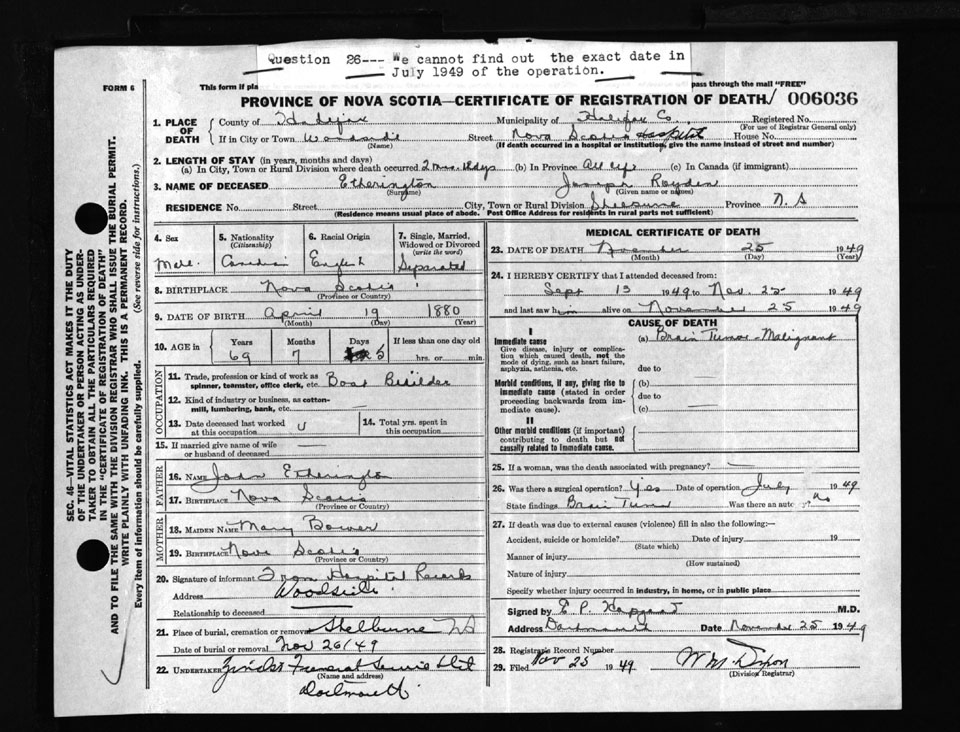 Question 26--- We cannot find out the exact date in
July 1949 of the operation.
FORM 6
This form if pla
pass through the mail "FREE"
PROVINCE OF NOVA SCOTIA—CERTIFICATE OF REGISTRATION OF DEATH/ 006036
1. PLACE OF DEATH County of Halifax Municipality of Halifax Co. Registered No.
(For use of Registrar General only)
If in City or Town Woodside Street Nova Scotia Hospital House No.
(Name) (If death occurred in a hospital or institution, give the name instead of street and number)
2. LENGTH OF STAY (in years, months and days)
(a) In City, Town or Rural Division where death occurred 2 mos. days (b) In Province All life (c) In Canada (if immigrant)
3. NAME OF DECEASED Etherington Joseph Royden
(Surname) (Given name or names)
RESIDENCE No. Street City, Town or Rural Division Shelburne Province N.S
(Residence means usual place of abode. Post Office Address for residents in rural parts not sufficient)
4. Sex
Male.
5. Nationality
(Citizenship)
Canadian
6. Racial Origin
English
7. Single, Married,
Widowed or Divorced
(write the word)
Separated
8. BIRTHPLACE Nova Scotia
(Province or Country)
9. DATE OF BIRTH April 19 1880
(Month) (Day) (Year)
10. AGE Years Months Days If less than one day old
69 7 6 hrs. or min.
OCCUPATION
11. Trade, profession or kind of work as
spinner, teamster, office clerk, etc. Boat Builder
12. Kind of industry or business, as cotton-
mill, lumbering, bank, etc. —
13. Date deceased last worked
at this occupation U
14. Total yrs. spent in
this occupation
15. If married give name of wife
or husband of deceased —
FATHER
16. NAME John Etherington
17. BIRTHPLACE Nova Scotia
(Province or Country)
MOTHER
18. MAIDEN NAME Mary Bower
19. BIRTHPLACE Nova Scotia
(Province or Country)
20. Signature of informant From Hospital Records
Address Woodside
Relationship to deceased
21. Place of burial, cremation or removal Shelburne NS
Date of burial or removal Nov 26/49
22. UNDERTAKER Funeral Service
(Name and address)
Dartmouth
MEDICAL CERTIFICATE OF DEATH
23. DATE OF DEATH November 25 1949
(Month) (Day) (Year)
24. I HEREBY CERTIFY that I attended deceased from:
Sept 13 1949 to Nov. 25 1949
and last saw him alive on November 25 1949
CAUSE OF DEATH
I
Immediate cause
Give disease, injury or complica-
tion which caused death, not the
mode of dying, such as heart failure,
asphyxia, asthenia, etc.
(a) Brain Tumor - Malignant
due to
Morbid conditions, if any, giving rise to
immediate cause (stated in order
proceeding backwards from im-
mediate cause).
(b)
due to
(c) —
II
Other morbid conditions (if important)
contributing to death but not
causally related to immediate cause.
25. If a woman, was the death associated with pregnancy? —
26. Was there a surgical operation? Yes Date of operation July 1949
State findings Brain Tumor Was there an autopsy? No
27. If death was due to external causes (violence) fill in also the following:—
Accident, suicide or homicide? Date of injury 19
(State which)
Manner of injury
(How sustained)
Nature of injury
Specify whether injury occurred in industry, in home, or in public place
Signed by E P M.D.
Address Dartmouth Date November 25 1949
28. Registrar's Record Number
29. Filed Nov 25 1949 W M Dixon
(Division Registrar)
SEC. 46—VITAL STATISTICS ACT MAKES IT THE DUTY
OF THE UNDERTAKER OR PERSON ACTING AS UNDER-
TAKER TO OBTAIN ALL THE PARTICULARS REQUIRED
IN THE "CERTIFICATE OF REGISTRATION OF DEATH"
AND TO FILE THE SAME WITH THE DIVISION REGISTRAR WHO SHALL ISSUE THE BURIAL PERMIT.
WRITE PLAINLY WITH UNFADING INK. THIS IS A PERMANENT RECORD.
Every item of information should be carefully supplied. (See reverse side for instructions.)